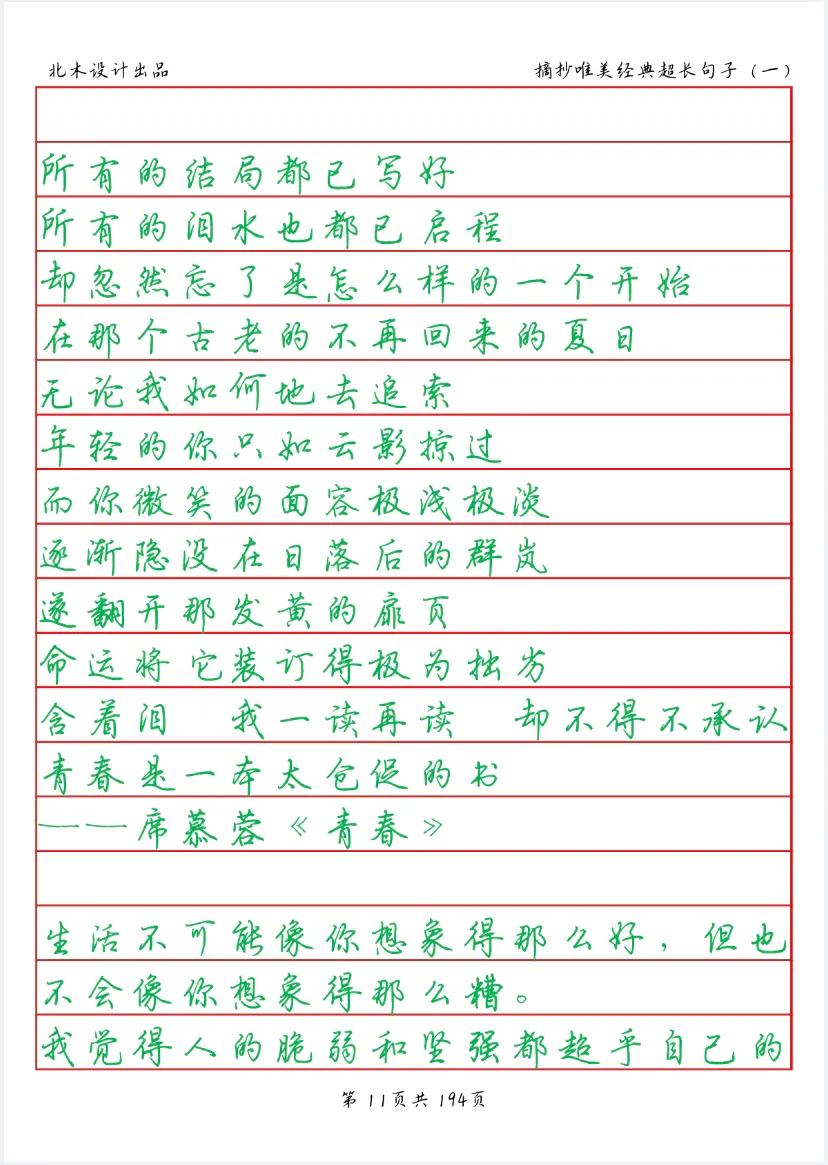 北木设计出品 摘抄唯美经典超长句子（一）
所有的结局都已写好
所有的泪水也都已启程
却忽然忘了是怎么样的一个开始
在那个古老的不再回来的夏日
无论我如何地去追索
年轻的你只如云影掠过
而你微笑的面容极浅极淡
逐渐隐没在日落后的群岚
遂翻开那发黄的扉页
命运将它装订得极为拙劣
含着泪 我一读再读 却不得不承认
青春是一本太仓促的书
——席慕蓉《青春》
生活不可能像你想象得那么好，但也
不会像你想象得那么糟。
我觉得人的脆弱和坚强都超乎自己的
第 11页共 194页